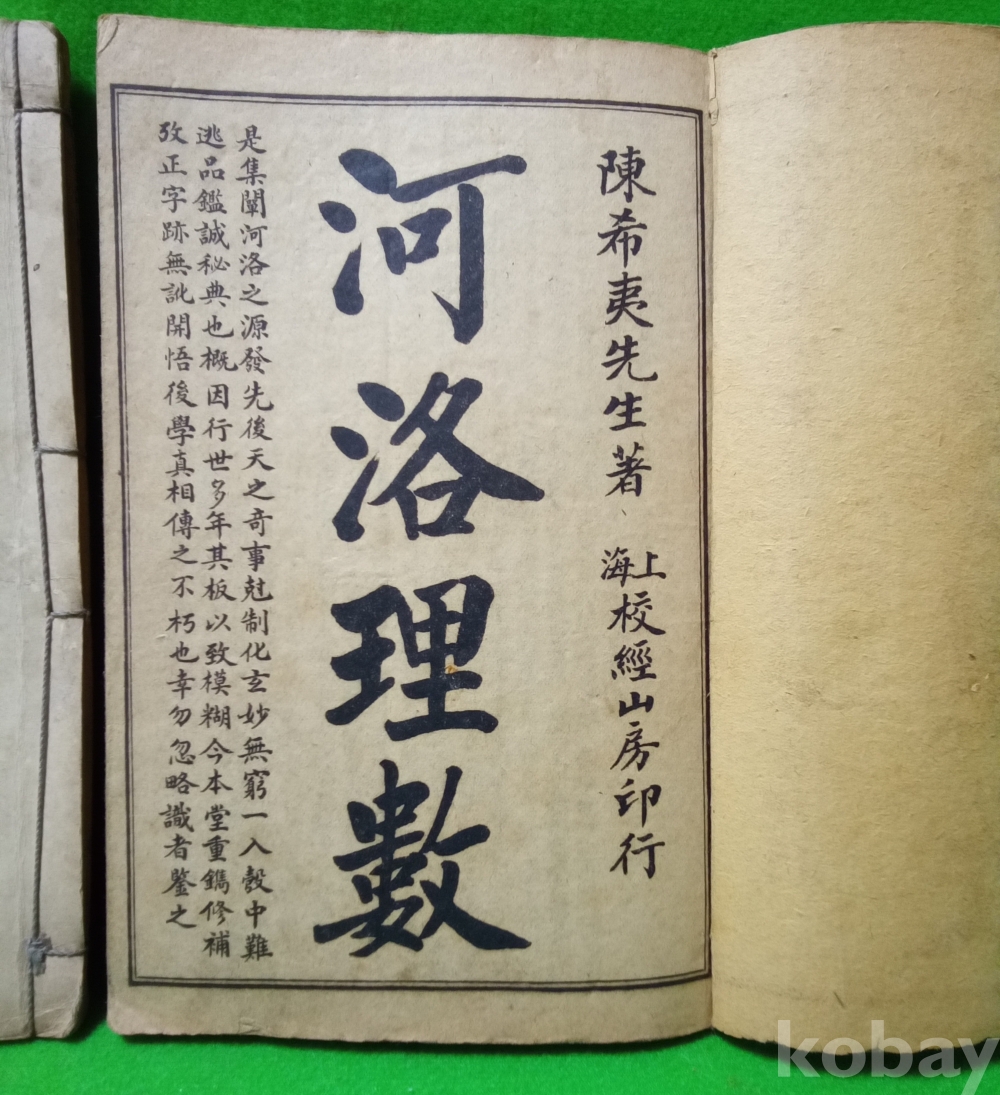 陳希夷先生著
上海校經山房印行
河洛理數
是集闡河洛之源發先後天之奇事尅制化玄妙無窮一入彀中難
逃品鑑誠秘典也概因行世多年其板以致模糊今本堂重鐫修補
攷正字跡無訛開悟後學真相傳之不朽也幸勿忽略識者鑒之
kobay